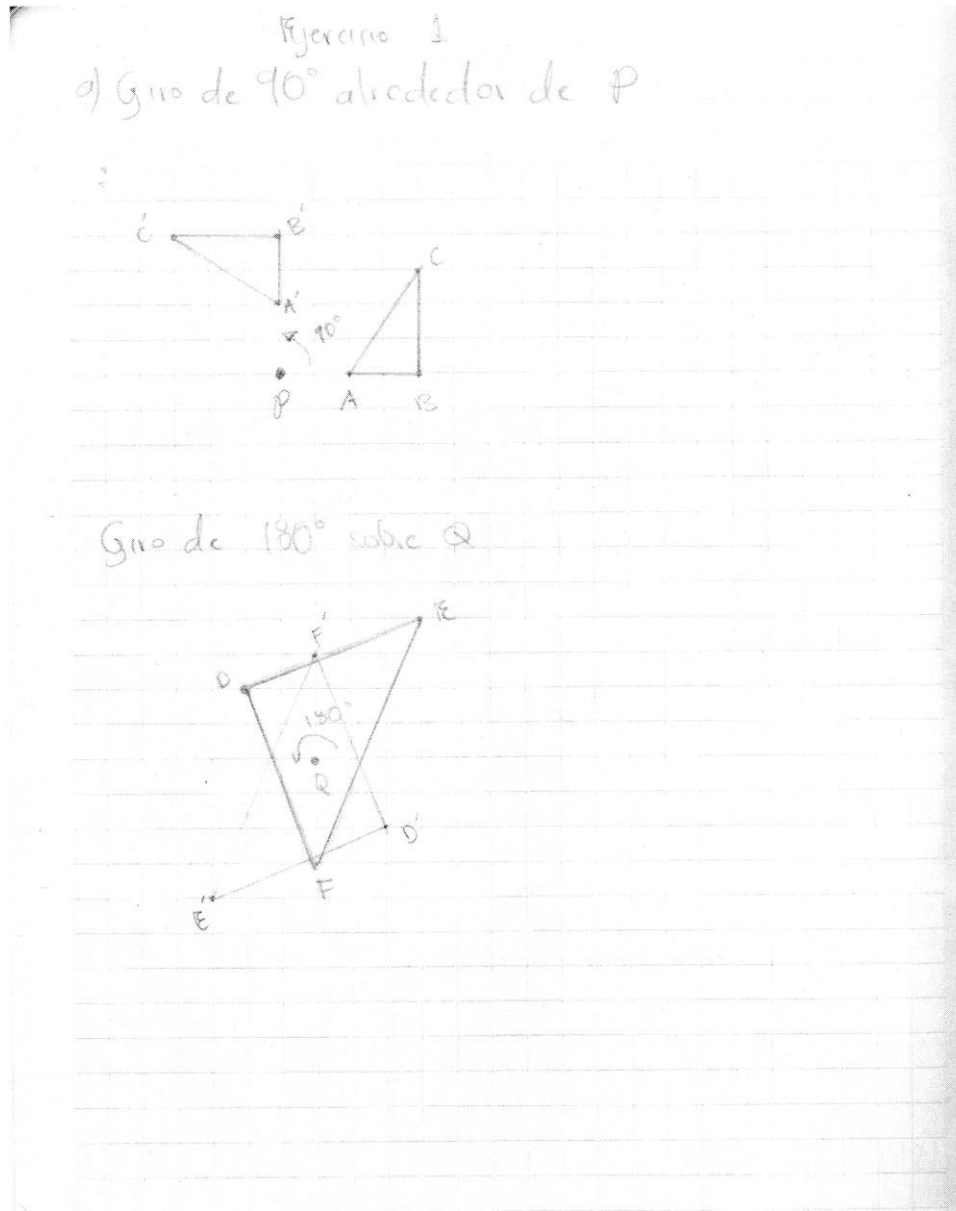 Ejercicio 1
a) Giro de 90° alrededor de P
C' B'
C
A'
90°
P A B
Giro de 180° sobre Q
E
F'
D
180°
Q
D'
F
E'